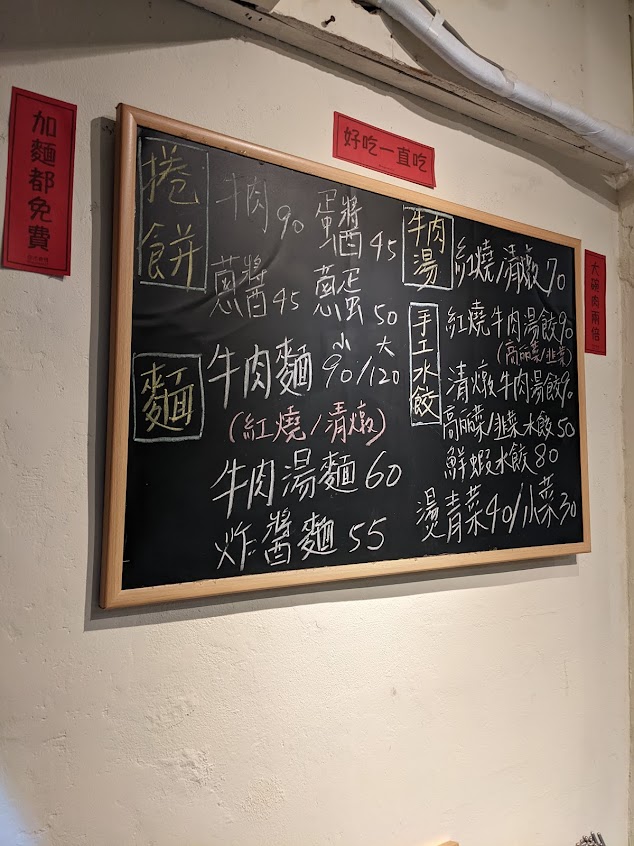 加麵都免費
好吃一直吃
大碗肉兩倍
捲餅
牛肉90 蛋醬45
蔥醬45 蔥蛋50
麵
牛肉麵 小90/大120
(紅燒/清燉)
牛肉湯麵60
炸醬麵55
牛肉湯
紅燒/清燉70
手工水餃
紅燒牛肉湯餃90
(高麗菜/韭菜)
清燉牛肉湯餃90
高麗菜/韭菜水餃50
鮮蝦水餃80
燙青菜40/小菜30